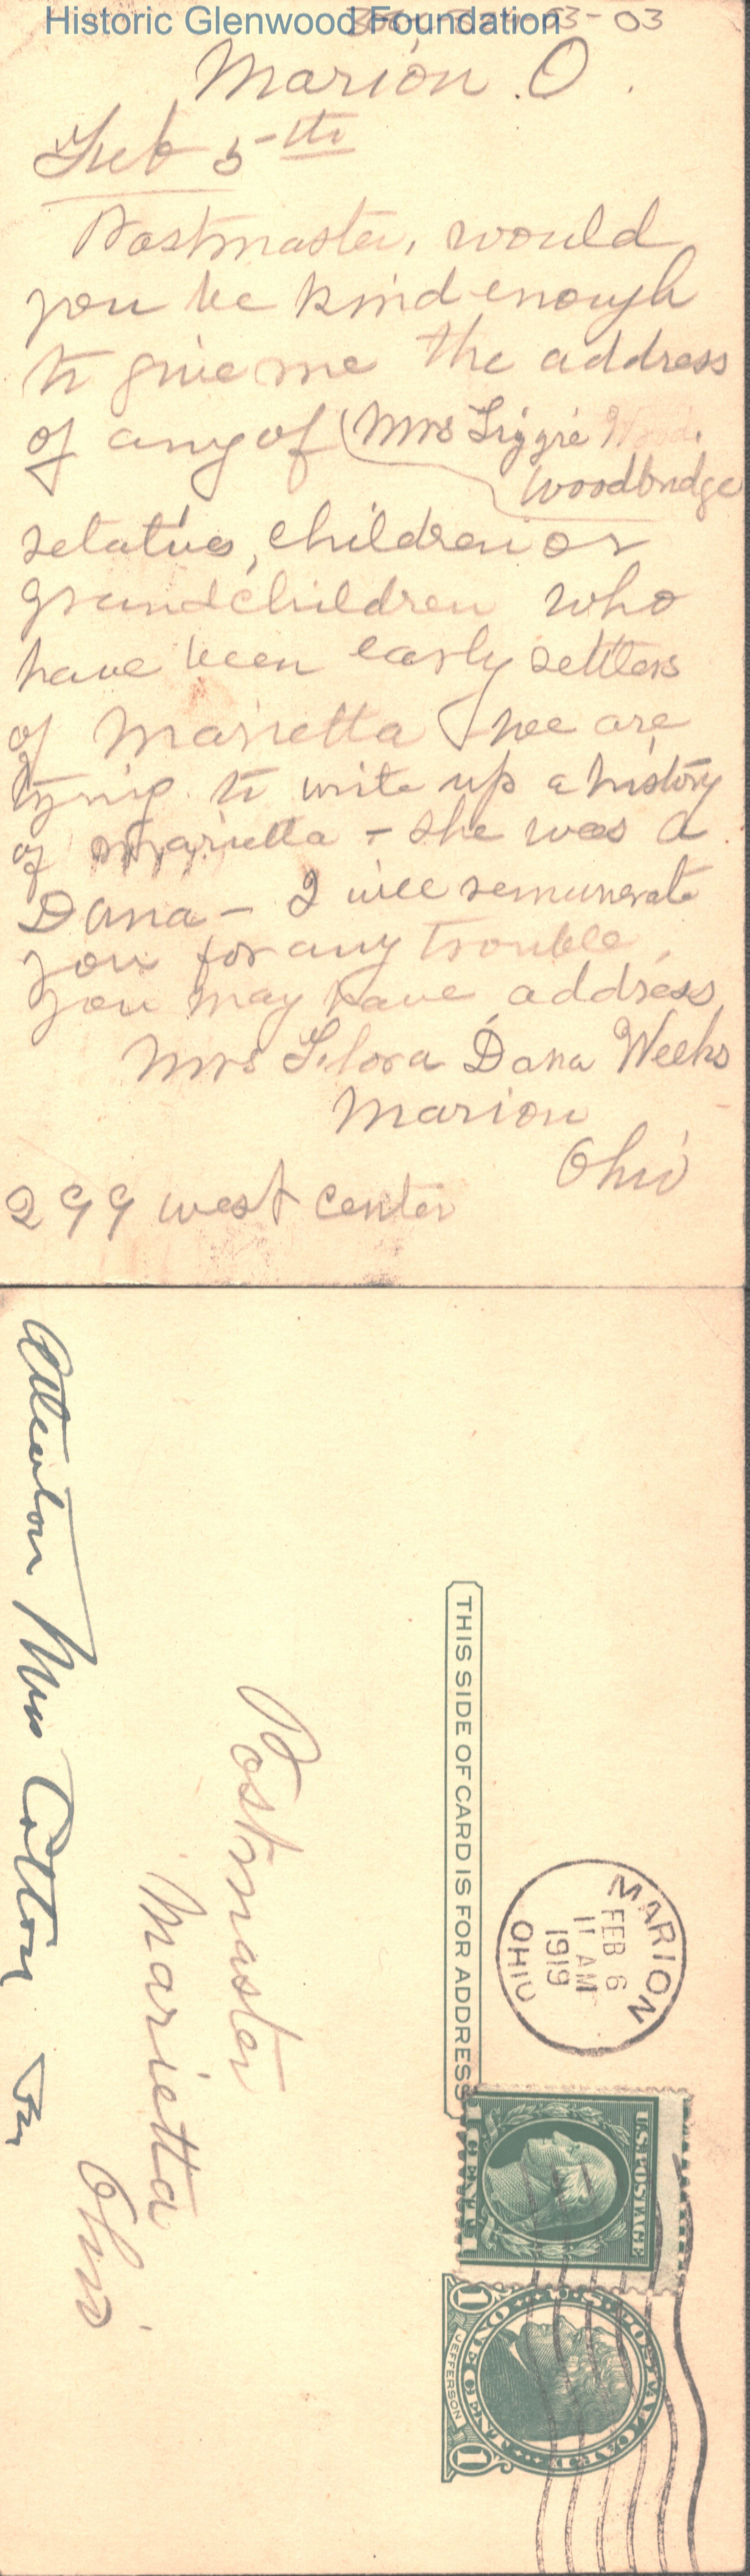 Historic Glenwood Foundation
03-03
Marion. O.
Feb 5th
Postmaster, would
you be kind enough
to give me the address
of any of (Mrs Liggie
Woodbridge
relatives, children or
grandchildren who
have been early settlers
of Marietta we are
trying to write up a history
of Marietta - she was a
Dana - I will remunerate
you for any trouble
you may have address
Mrs Flora Dana Weeks
Marion
Ohio
299 west Center
THIS SIDE OF CARD IS FOR ADDRESS
MARION
FEB 6
11 AM
1919
OHIO
U.S. POSTAGE
1 CENT 1
U.S. POSTAL CARD
ONE CENT
1 JEFFERSON 1
Postmaster
Marietta
Ohio
Attention Miss Cotton